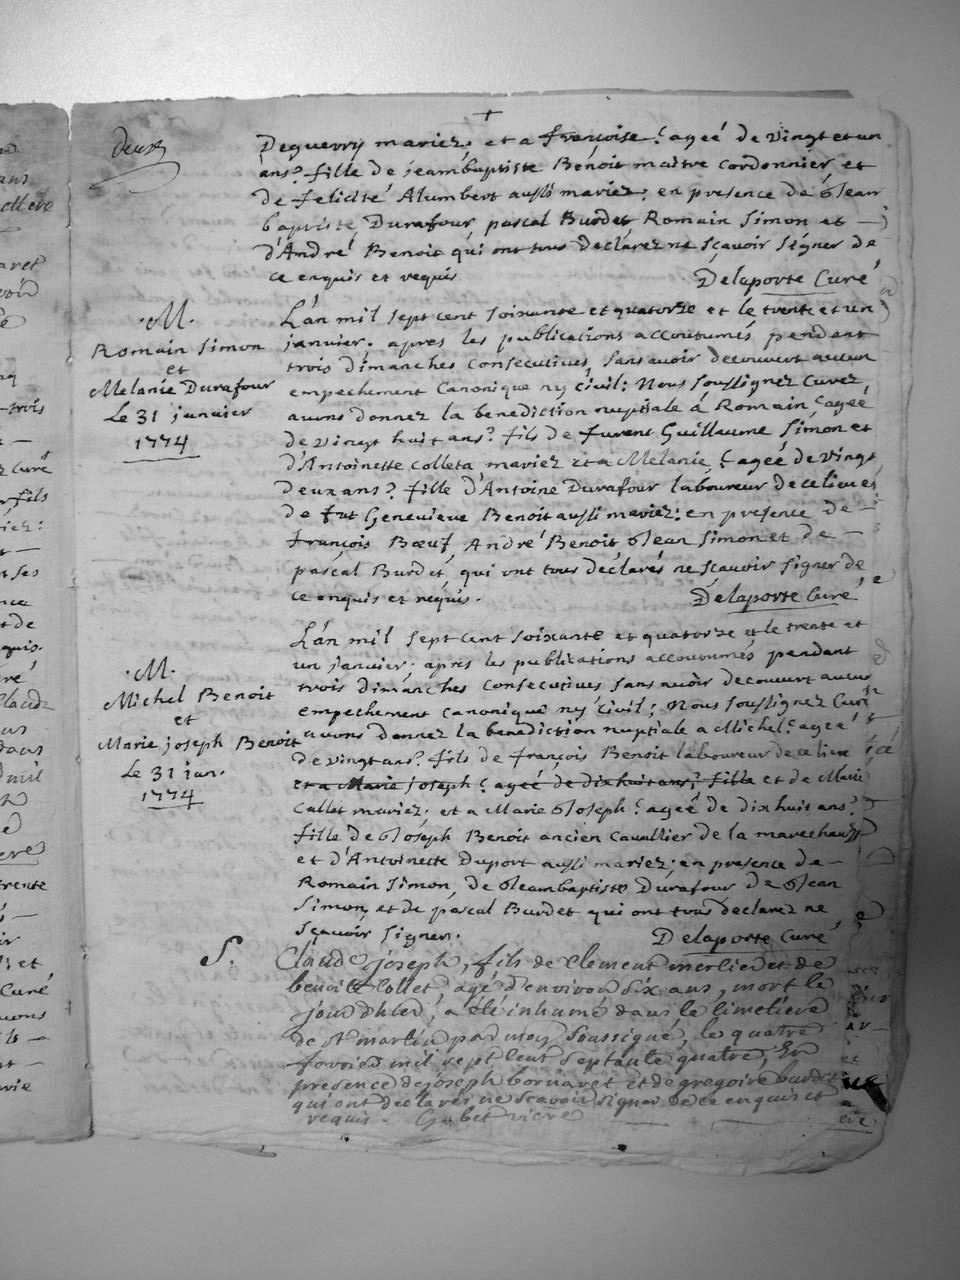 +
deux
Deguerry mariez. et a françoise (ageé de vingt et un
ans) fille de jeambaptiste Benoit maitre cordonnier et
de felicité Alumbert aussi mariez; en presence de Jean
baptiste Durafour, pascal Burdet Romain Simon et —
d'André Benoit qui ont tous declarez ne sçavoir signer de
ce enquis et requis
Delaporte Curé
.M.
Romain Simon
et
Melanie Durafour
Le 31 janvier
1774
L'an mil sept cent soixante et quatorze et le trente et un
janvier. apres les publications accoutumés pendent
trois dimanches consecutives, sans avoir decouvert aucun
empechement Canonique ny civil; Nous soussignez Curez
avons donnez la benediction nuptiale á Romain (ageé
de vingt huit ans) fils de fuvent Guillaume Simon et
d'Antoinette Colleta mariez et a Melanie, (ageé de vingt
deux ans) fille d'Antoine Durafour laboureur de ce lieu et
de fut Genevieve Benoit aussi mariez; en presence de —
françois Bœuf, André Benoit Jean Simon et de —
pascal Burdet, qui ont tous déclarés ne scavoir signer de
ce enquis et requis.
Delaporte Curé
.M.
Michel Benoit
et
Marie joseph Benoit
Le 31 jan.
1774
L'an mil sept cent soixante et quatorze et le trente et
un janvier. aprés les publications accoutumés pendant
trois dimanches consecutives sans avoir decouvert aucun
empechement canonique ny civil; Nous soussignez Curé
avons donnez la benediction nuptiale a Michel (ageé
de vingt ans) fils de françois Benoit laboureur de ce lieu
et a Marie joseph (ageé de dix huit ans) fille et de Marie
Collet mariez. et a Marie Joseph (ageé de dix huit ans)
fille de Joseph Benoit ancien Cavallier de la marechaussé
et d'Antoinette Duport aussi mariez; en presence de —
Romain Simon, de Jeambaptiste Durafour de Jean
Simon, et de pascal Burdet qui ont tous declarez ne
sçavoir signer.
Delaporte Curé
S.
Claude joseph, fils de Clement merlier et de
benoite Collet agé d'environ six ans, mort le
jour d'hier, a été inhumé dans le Cimetiere
de St martin par moy soussigné, le quatre
fevrier mil sept Cent septante quatre, En
presence de joseph bornaret et de gregoire burdet
qui ont declarés ne scavoir signer de ce enquis et
requis.